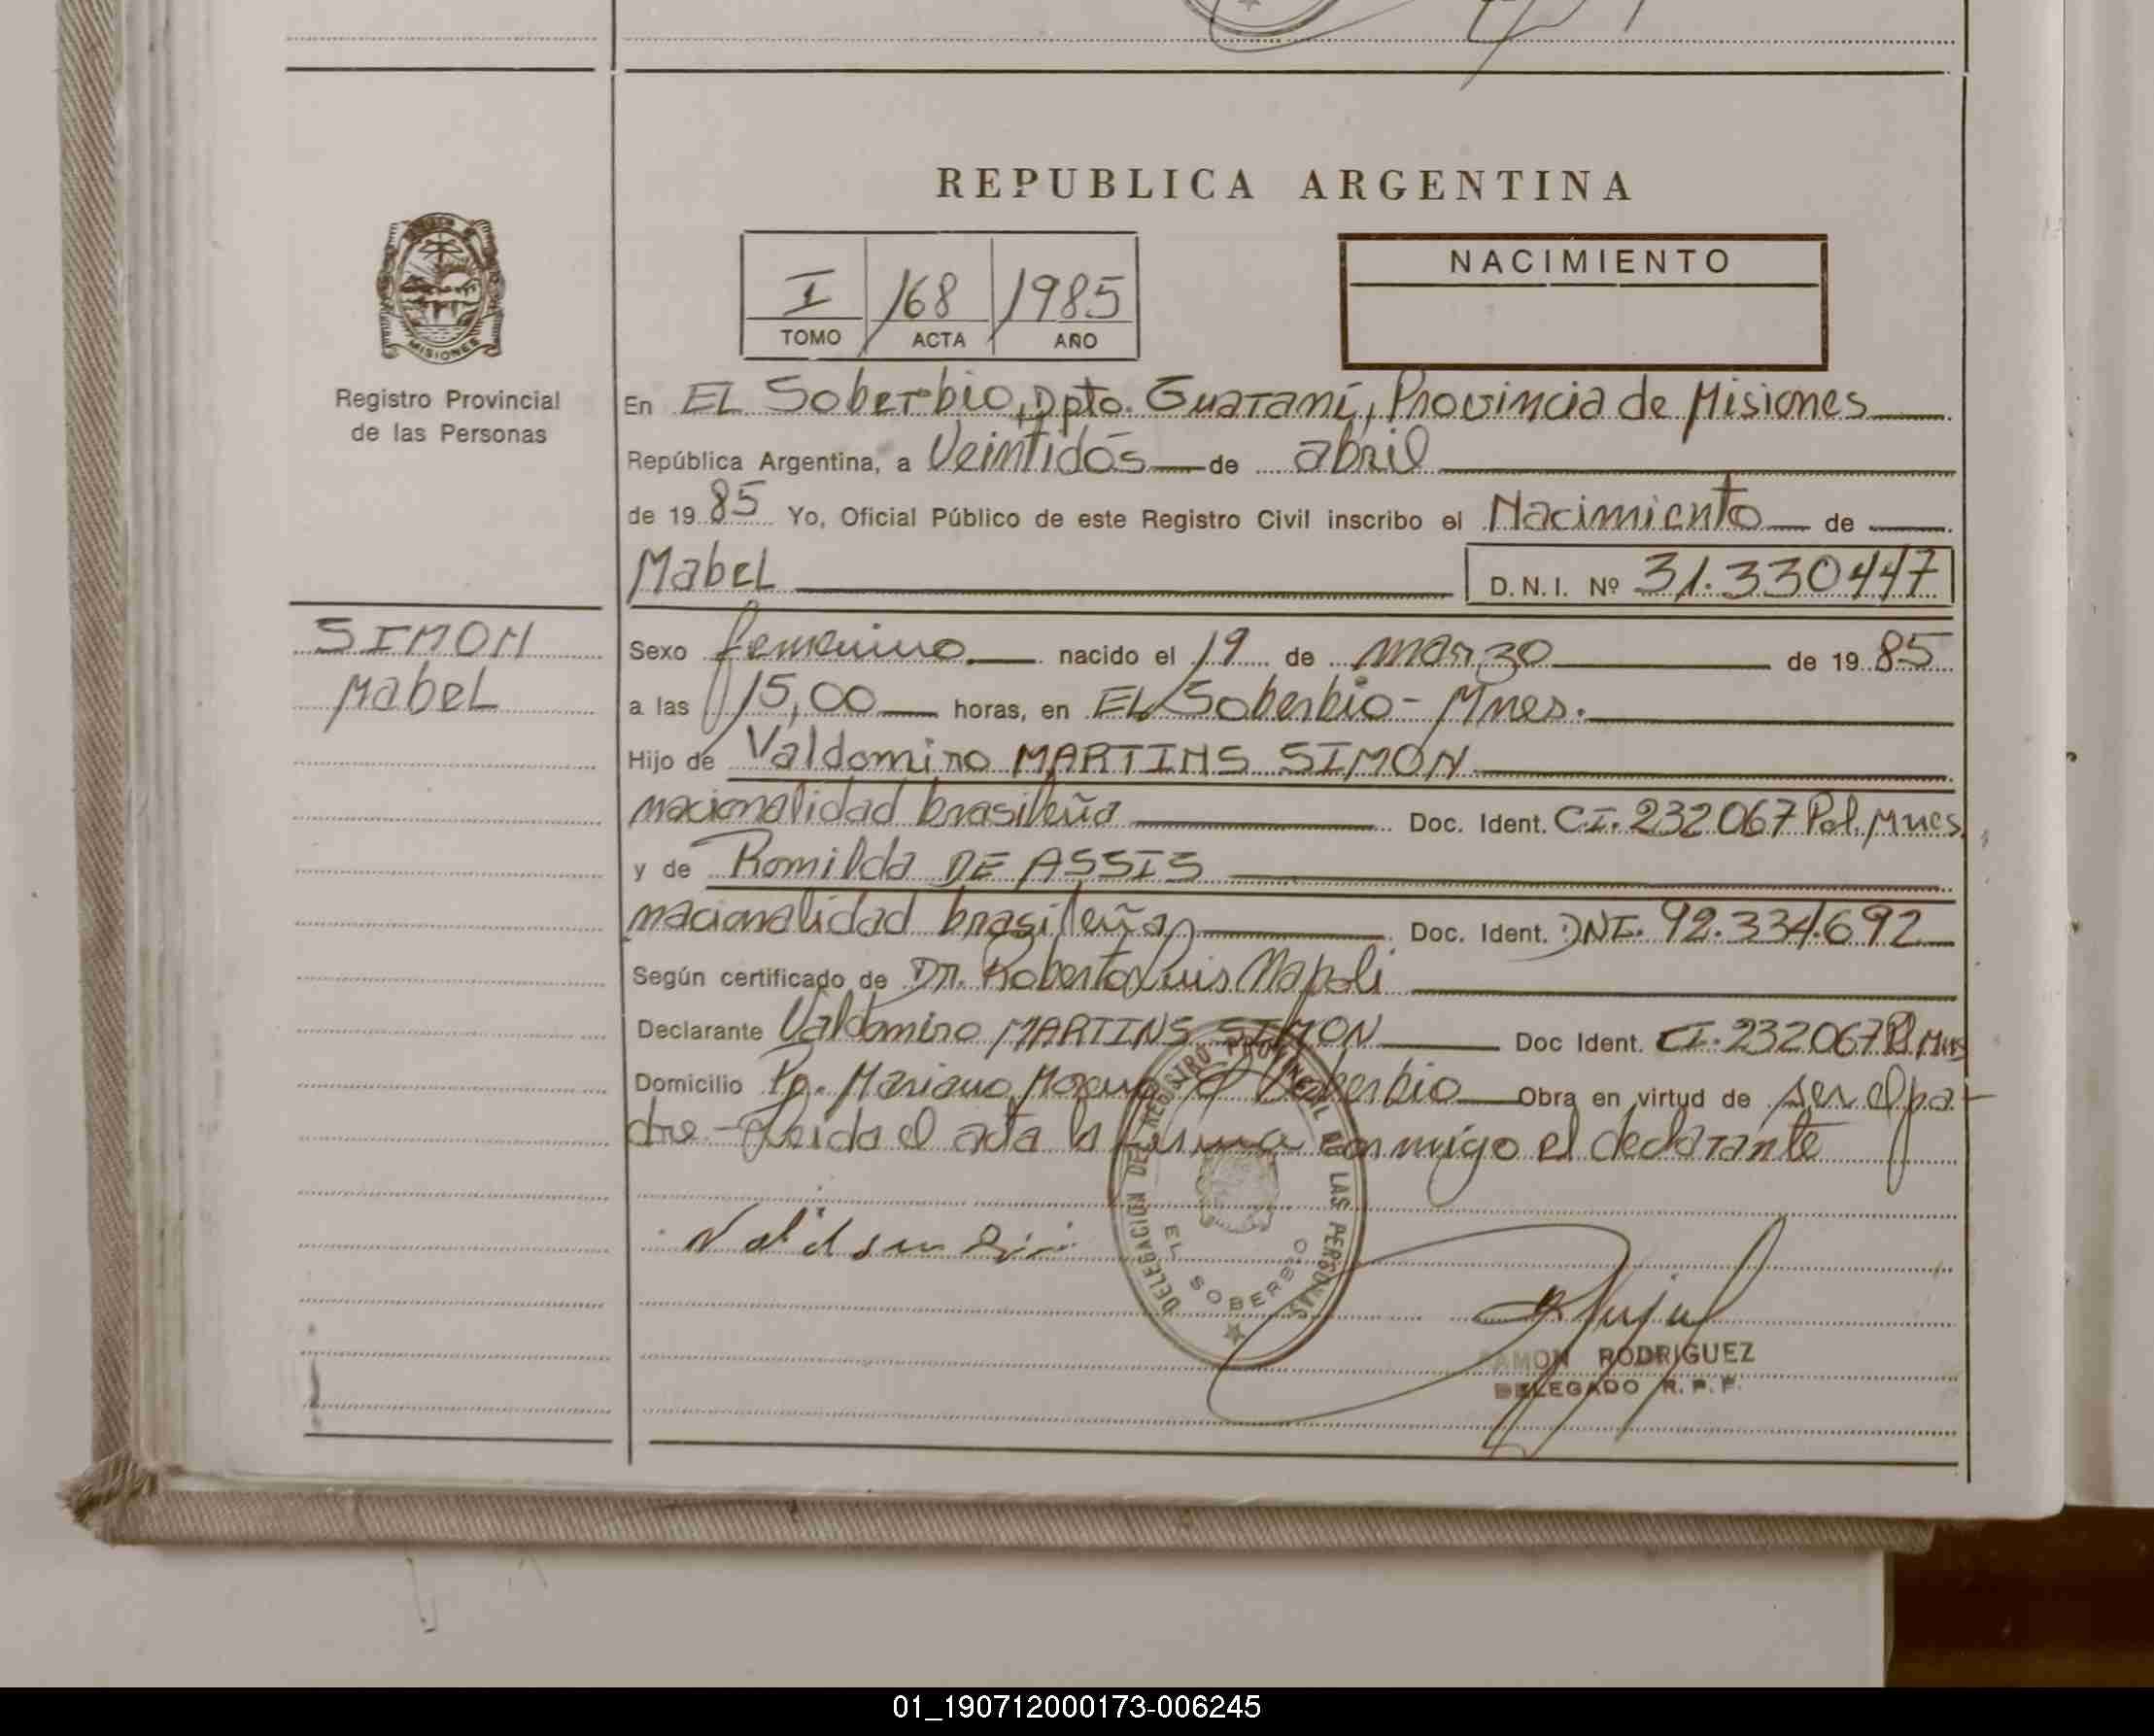 REPUBLICA ARGENTINA
NACIMIENTO
I 168 1985
TOMO ACTA AÑO
MISIONES
Registro Provincial
de las Personas
En EL Soberbio, Dpto. Guaraní, Provincia de Misiones
República Argentina, a Veintidós de abril
de 19 85 Yo, Oficial Público de este Registro Civil inscribo el Nacimiento de
Mabel D.N.I. Nº 31.330447
SIMON
Mabel
Sexo femenino nacido el 19 de marzo de 19 85
a las 15,00 horas, en EL Soberbio - Mnes.
Hijo de Valdomiro MARTINS SIMON
nacionalidad brasileña Doc. Ident. CI. 232067 Pol. Mnes
y de Romilda DE ASSIS
nacionalidad brasileña Doc. Ident. DNI. 92.334.692
Según certificado de Dr. Roberto Luis Napoli
Declarante Valdomiro MARTINS SIMON Doc Ident. CI. 232067 Pl Mns
Domicilio Pg. Mariano Moreno El Soberbio Obra en virtud de ser el pa-
dre - Leida el acta la firma conmigo el declarante
DELEGACION DEL REGISTRO PROVINCIAL DE LAS PERSONAS
EL SOBERBIO
RAMON RODRIGUEZ
DELEGADO R. P. P.
01_190712000173-006245